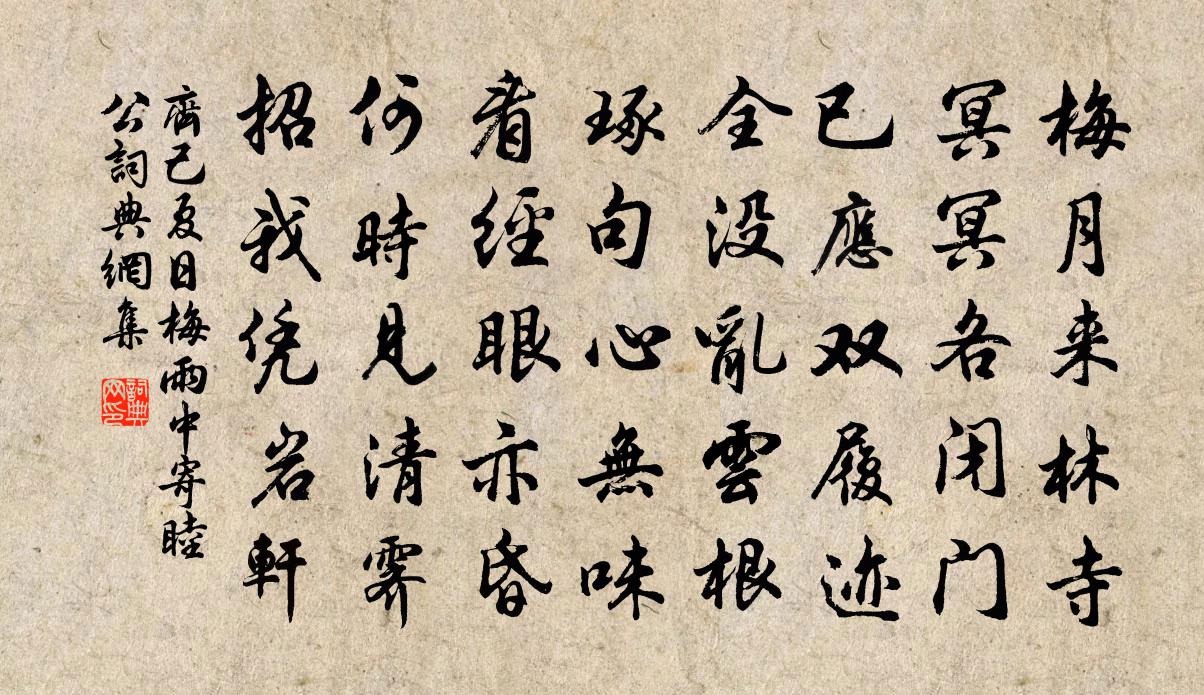 梅月来林寺
冥冥各闭门
已應双履迹
全没亂雲根
琢句心無味
看經眼亦昏
何時見清霽
招我凭岩軒
齊己夏日梅雨中寄睦
公詞典網集
詞典
网印